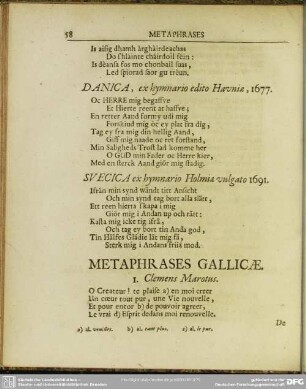 58 METAPHRASES
Is aisig dhamh árghàirdeachas
Do shlàinte chàirdoil fein:
Is dèansa fos mo chonbail suas,
Led spiorad saor gu trèun.
DANICA, ex hymnario edito Havniæ, 1677.
Oc HERRE mig begaffve
Et Hierte reent at haffve;
En retter Aand forny udi mig
Forskiud mig oc ey plat fra dig,
Tag ey fra mig din hellig Aand,
Giff mig naade oc ret forstand,
Min Saligheds Trost lad komme her
O GUD min Fader oc Herre kier,
Med en sterck Aand giör mig stadig.
SVECICA ex hymnario Holmiæ vulgato 1691.
Ifrån min synd wändt titt Ansicht
Och min synd tag bort alla slätt,
Ett reen hierta skapa i mig
Giör mig i Andan up och rätt:
Kasta mig icke tig ifrå,
Och tag ey bort tin Anda god,
Tin Hälses Glädie låt mig få,
Sterk mig i Andans friia mod.
METAPHRASES GALLICÆ.
1. Clemens Marotus.
O Createur! te plaise a) en moi creer
Un cœur tout pur, une Vie nouvelle,
Et pour encor b) de pouvoir agreer,
Le vrai d) Esprit dedans moi renouvelle.
De